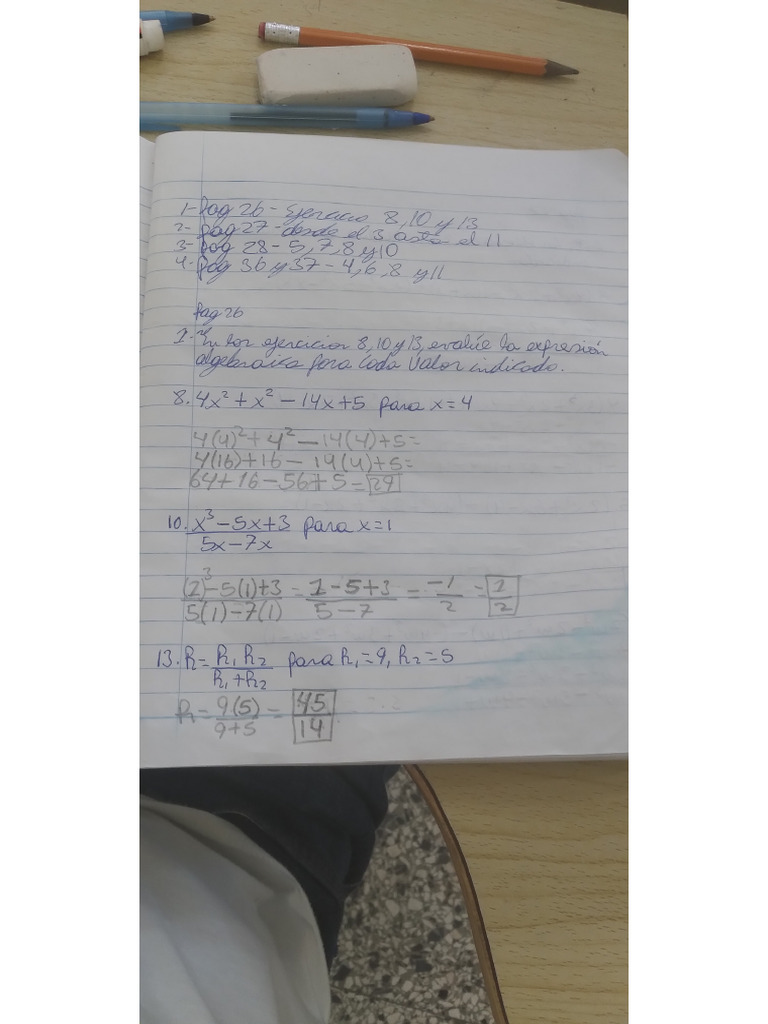 1- pag 26 - Ejercicio 8, 10 y 13
2- pag 27 - desde el 3 asta el 11
3- pag 28 - 5, 7, 8 y 10
4- pag 36 y 37 - 4, 6, 8 y 11
pag 26
I- En los ejercicios 8, 10 y 13, evalúe la expresión
algebraica para cada valor indicado.
8. 4x² + x² - 14x + 5 para x = 4
4(4)² + 4² - 14(4) + 5 =
4(16) + 16 - 14(4) + 5 =
64 + 16 - 56 + 5 = 29
10. x³ - 5x + 3 / 5x - 7x para x = 1
(1)³ - 5(1) + 3 / 5(1) - 7(1) = 1 - 5 + 3 / 5 - 7 = -1 / -2 = 1 / 2
13. R = R₁ R₂ / R₁ + R₂ para R₁ = 9, R₂ = 5
R = 9(5) / 9 + 5 = 45 / 14